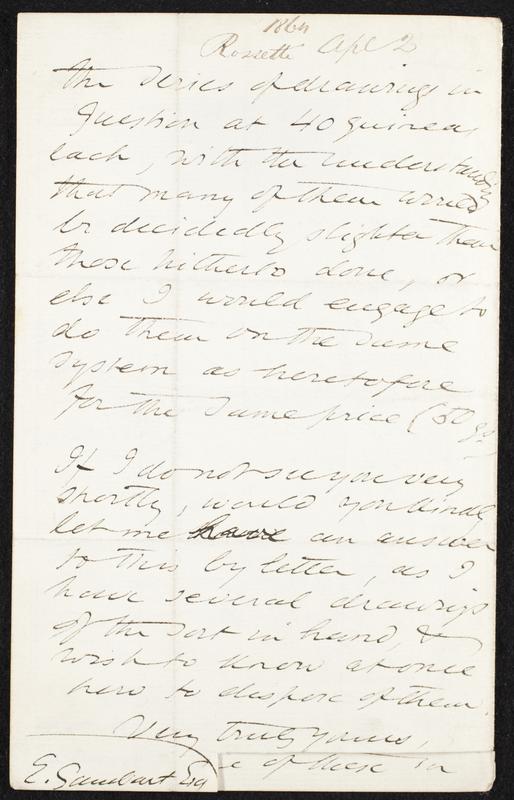 1864
Rossetti Apl 2
the series of drawings in
question at 40 guineas
each, with the understanding
that many of them would
be decidedly slighter than
those hitherto done, or
else I would engage to
do them on the same
system as heretofore
for the same price (50 gs)
If I do not see you very
shortly, would you kindly
let me have an answer
to this by letter, as I
have several drawings
of the sort in hand, &
wish to know at once
how to dispose of them.
Very truly yours,
of these in
E. Gambart Esq